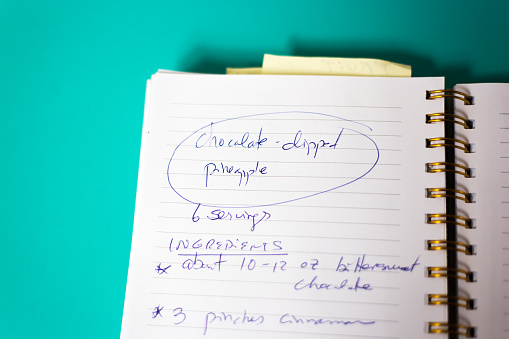 chocolate-dipped
pineapple
6 servings
INGREDIENTS
* about 10-12 oz bittersweet
chocolate
* 3 pinches cinnamon